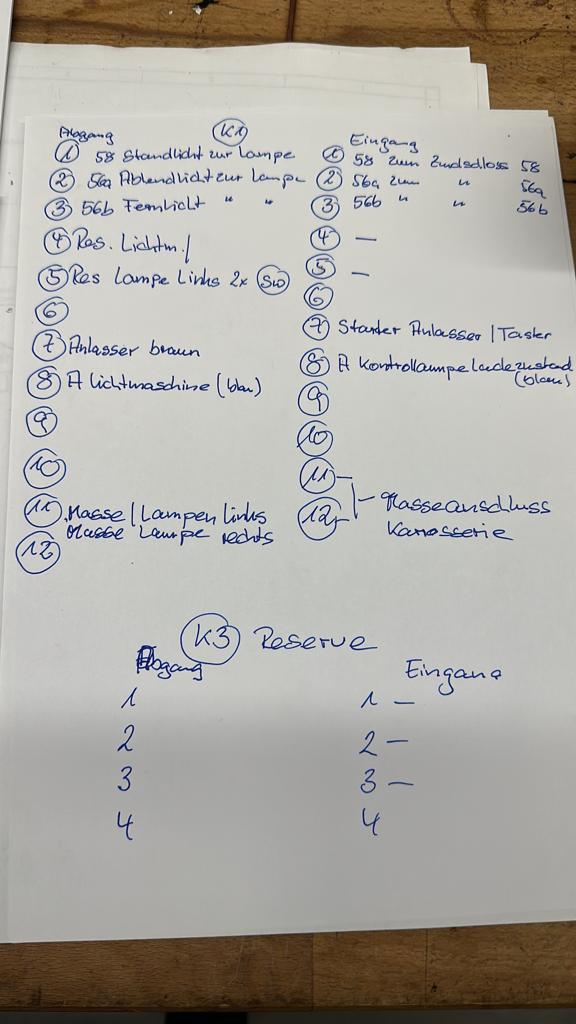 K1
Abgang
1 58 Standlicht zur Lampe
2 56a Ablendlicht zur Lampe
3 56b Fernlicht " "
4 Res. Lichtm. /
5 Res Lampe Links 2x SW
6
7 Anlasser braun
8 A Lichtmaschine (blau)
9
10
11 Masse / Lampen links
12 Masse Lampe rechts
Eingang
1 58 zum Zündschloss 58
2 56a zum " 56a
3 56b " " 56b
4 —
5 —
6
7 Starter Anlasser / Taster
8 A Kontrollampe Ladezustand
(blau)
9
10
11
12
Masseanschluss
Karosserie
K3 Reserve
Abgang
1
2
3
4
Eingang
1 —
2 —
3 —
4